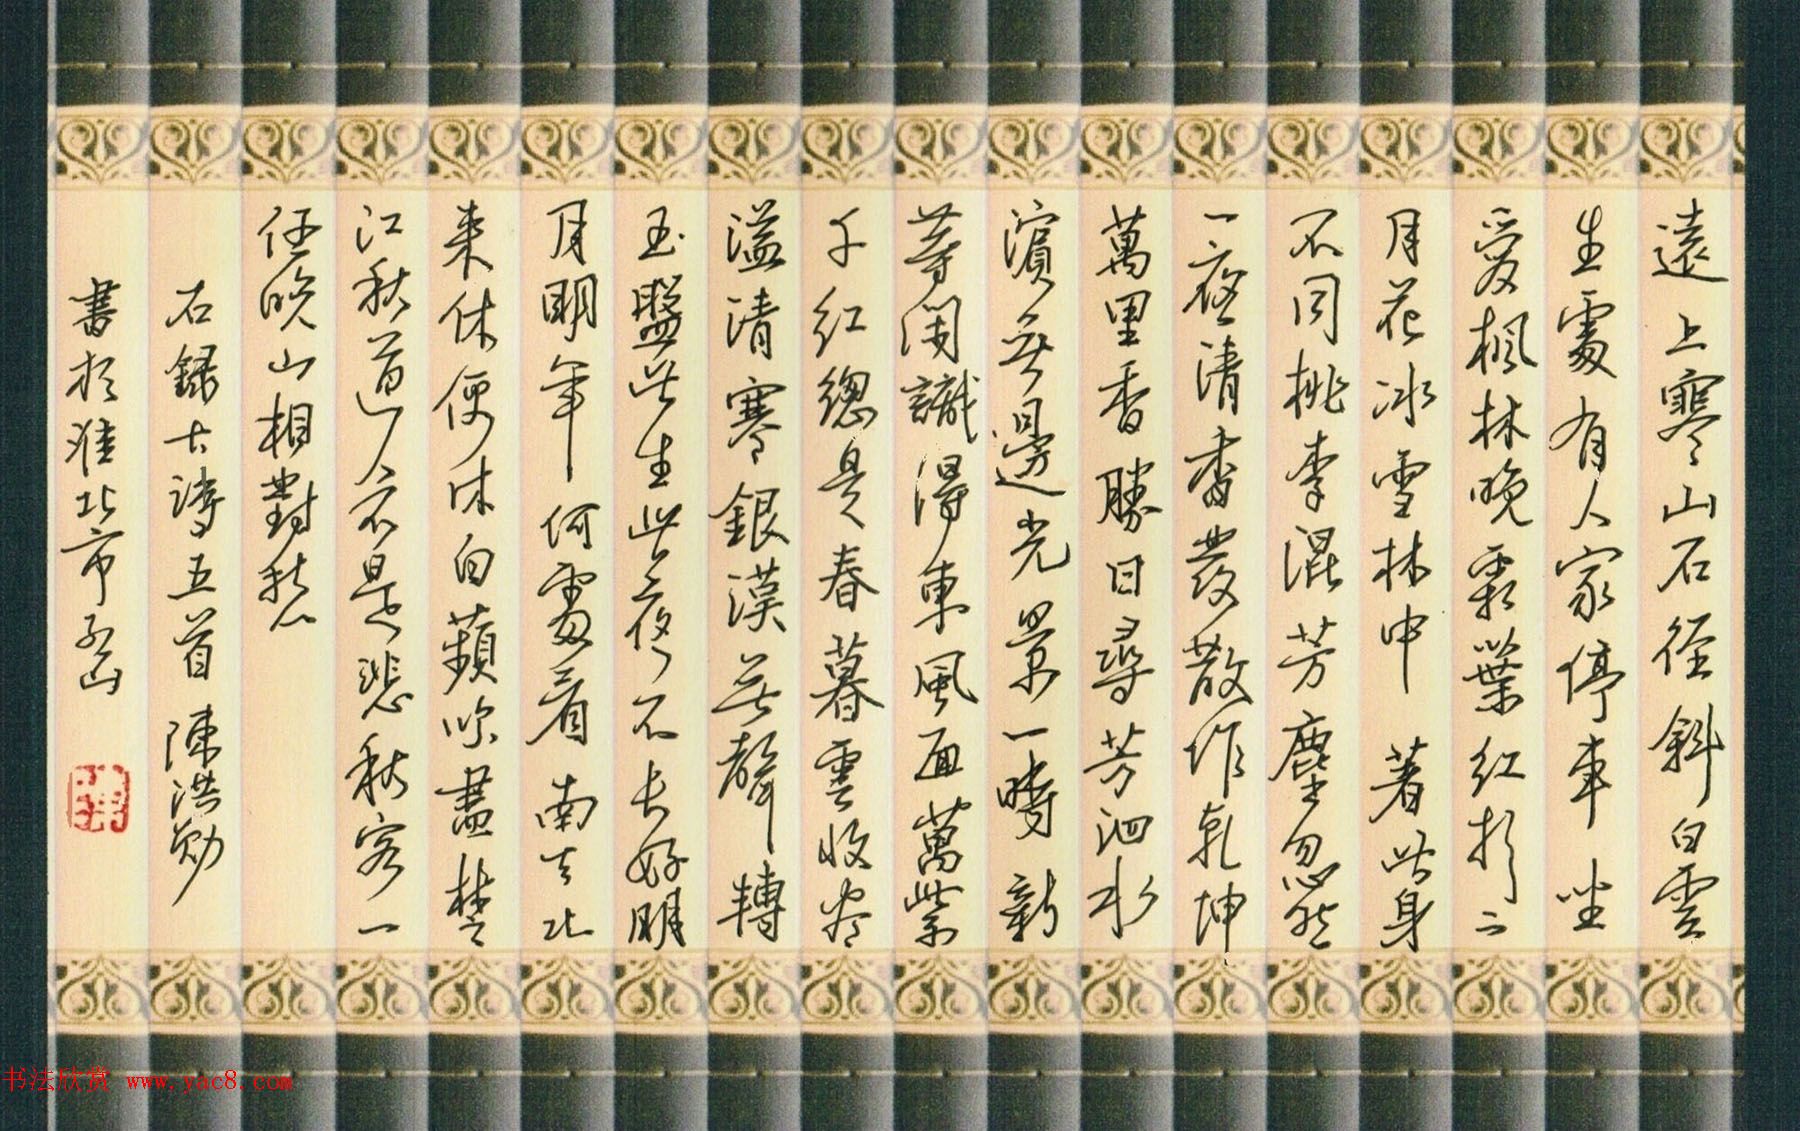 遠上寒山石徑斜白雲
生處有人家停車坐
愛楓林晚霜葉紅於二
月花冰雪林中著此身
不同桃李混芳塵忽然
一夜清香發散作乾坤
萬里香勝日尋芳泗水
濱無邊光景一時新
等閑識得東風面萬紫
千紅總是春暮雲收盡
溢清寒銀漢無聲轉
玉盤此生此夜不長好明
月明年何處看南去北
來休便休白蘋吹盡楚
江秋道人不是悲秋客一
任晚山相對愁
右錄古詩五首 陳洪
書於淮北市
书法欣赏 www.yac8.com